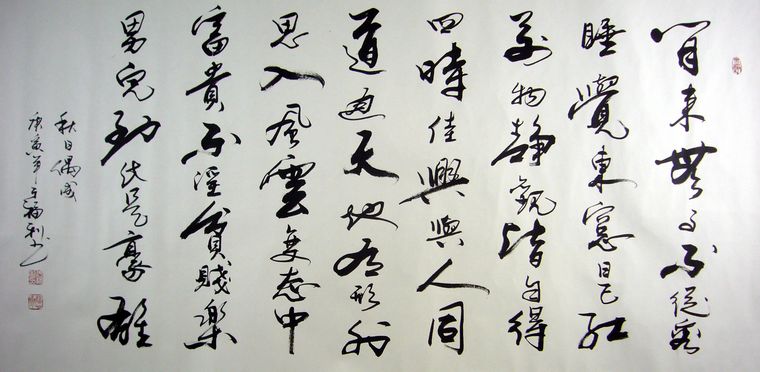 閒来無事不從容
睡覺東窓日已紅
萬物静觀皆自得
四時佳興與人同
道通天地有形外
思入風雲变态中
富貴不淫貧賤樂
男兒到此是豪雄
秋日偶成
庚寅 福利